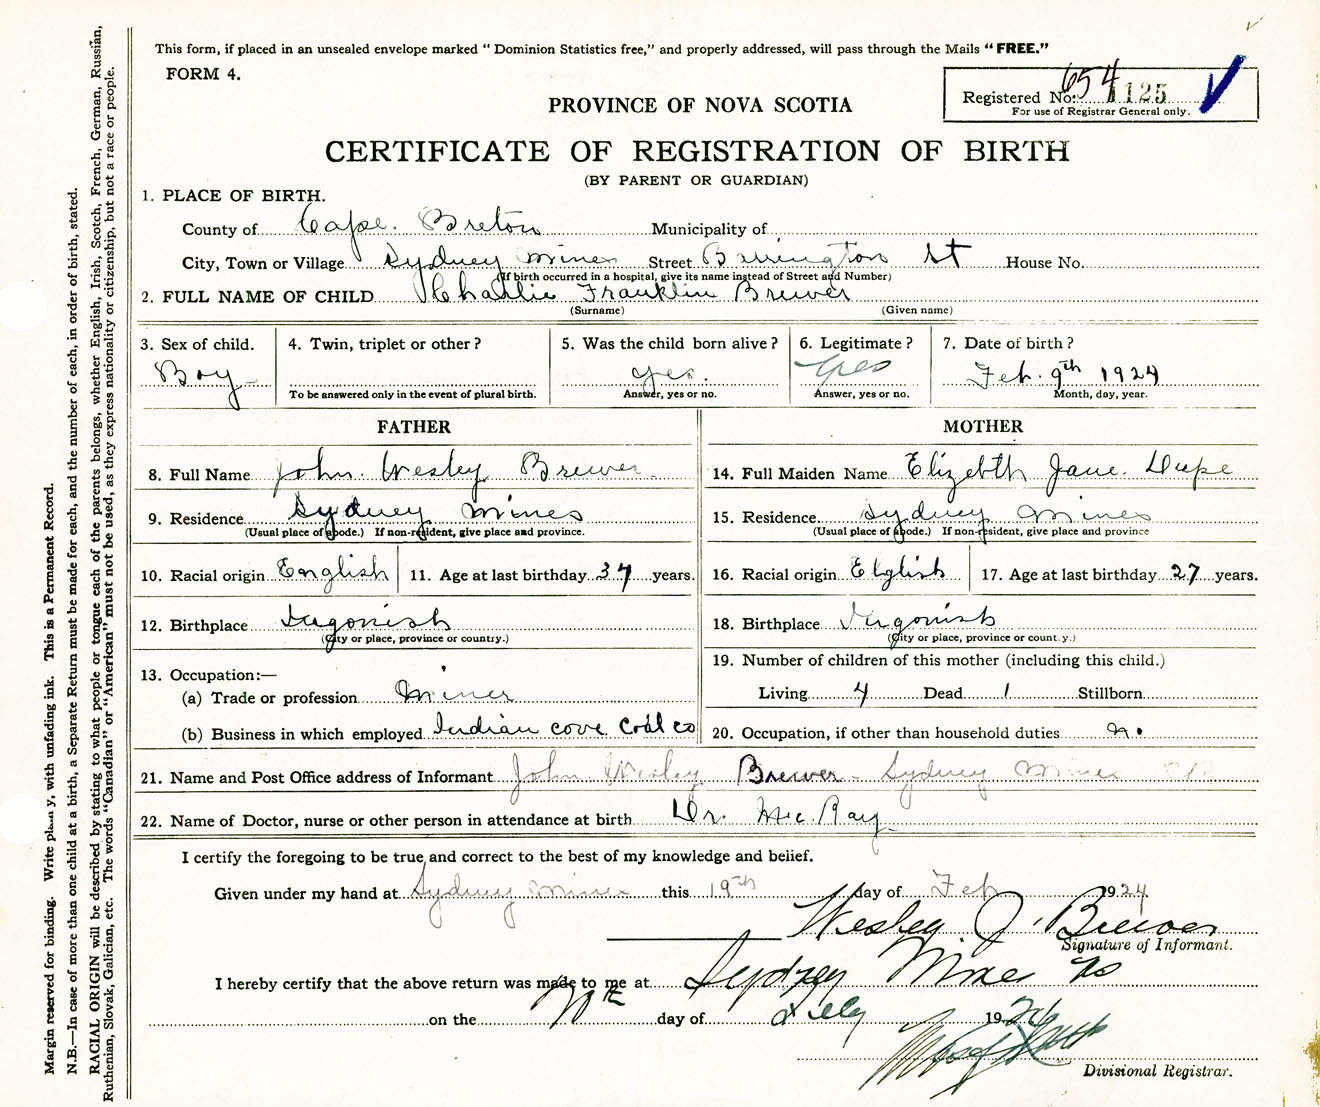 This form, if placed in an unsealed envelope marked " Dominion Statistics free," and properly addressed, will pass through the Mails " FREE."
FORM 4.
Registered No. 654 1125
For use of Registrar General only.
PROVINCE OF NOVA SCOTIA
CERTIFICATE OF REGISTRATION OF BIRTH
(BY PARENT OR GUARDIAN)
1. PLACE OF BIRTH.
County of Cape. Breton Municipality of
City, Town or Village Sydney Mines Street St House No.
(If birth occurred in a hospital, give its name instead of Street and Number)
2. FULL NAME OF CHILD Charlie Franklin Brewer
(Surname) (Given name)
3. Sex of child. 4. Twin, triplet or other ? 5. Was the child born alive ? 6. Legitimate ? 7. Date of birth ?
Boy yes. yes Feb. 9th 1924
To be answered only in the event of plural birth. Answer, yes or no. Answer, yes or no. Month, day, year.
FATHER
8. Full Name John. Wesley Brewer
9. Residence Sydney Mines
(Usual place of abode.) If non-resident, give place and province.
10. Racial origin English 11. Age at last birthday 34 years.
12. Birthplace Ingonish
(City or place, province or country.)
13. Occupation:—
(a) Trade or profession Miner
(b) Business in which employed Indian cove Coal co
MOTHER
14. Full Maiden Name Elizebth Jane. Dupe
15. Residence Sydney Mines
(Usual place of abode.) If non-resident, give place and province
16. Racial origin Elglish 17. Age at last birthday 27 years.
18. Birthplace Ingonish
(City or place, province or count.y.)
19. Number of children of this mother (including this child.)
Living 4 Dead 1 Stillborn
20. Occupation, if other than household duties
21. Name and Post Office address of Informant John Wesley Brewer - Sydney Mines CB
22. Name of Doctor, nurse or other person in attendance at birth Dr. Mc. Ray
I certify the foregoing to be true and correct to the best of my knowledge and belief.
Given under my hand at Sydney Mines this 19th day of Feb 1924
Wesley J. Brewer
Signature of Informant.
I hereby certify that the above return was made to me at Sydney Mines NS
on the day of 1924
Divisional Registrar.
Margin reserved for binding. Write plainly, with unfading ink. This is a Permanent Record.
N.B.—In case of more than one child at a birth, a Separate Return must be made for each, and the number of each, in order of birth, stated.
RACIAL ORIGIN will be described by stating to what people or tongue each of the parents belongs, whether English, Irish, Scotch, French, German, Russian,
Ruthenian, Slovak, Galician, etc. The words "Canadian" or "American" must not be used, as they express nationality or citizenship, but not a race or people.